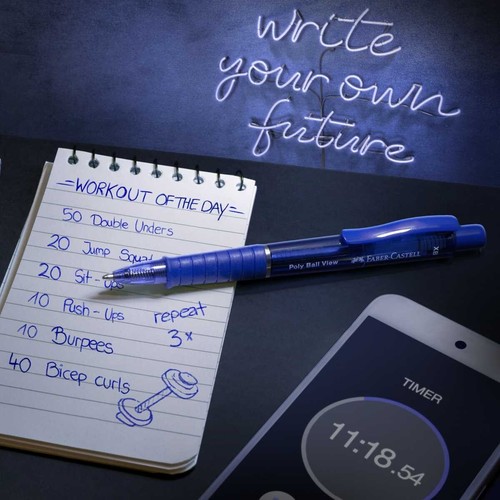 write
your own
future
=WORKOUT OF THE DAY=
50 Double Unders
20 Jump Squats
20 Sit-ups
10 Push-Ups
repeat
3x
10 Burpees
40 Bicep curls
Poly Ball View FABER-CASTELL XB
TIMER
11:18.54